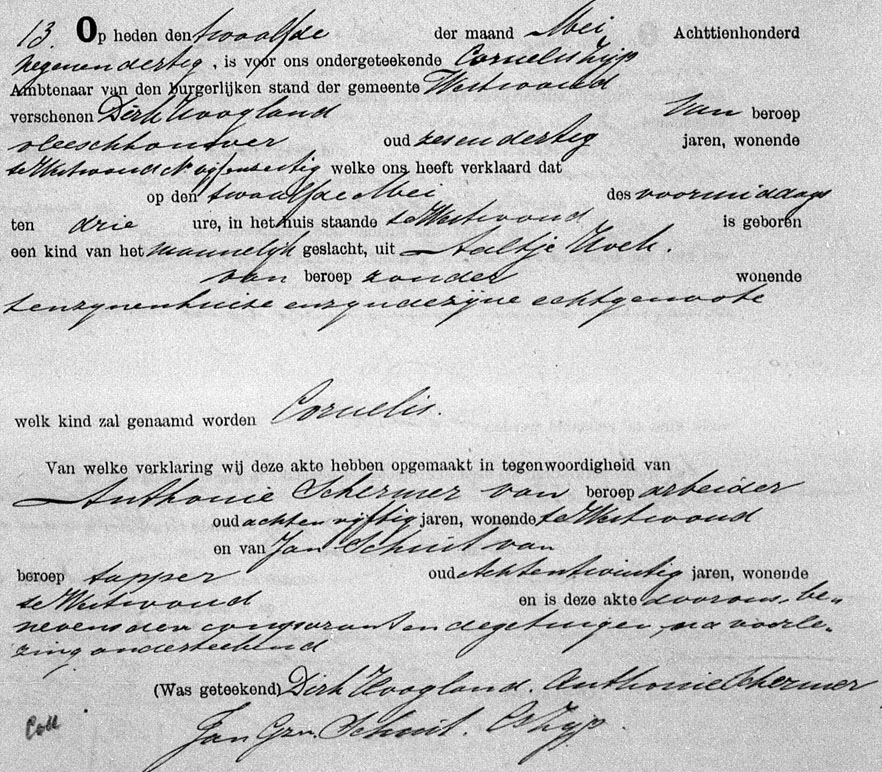 13. Op heden den twaalfde der maand Mei Achttienhonderd
negenendertig, is voor ons ondergeteekende Cornelis Zijp
Ambtenaar van den burgerlijken stand der gemeente Westwoud
verschenen Dirk Hoogland van beroep
vleeschhouwer oud zesendertig jaren, wonende
te Westwoud No welke ons heeft verklaard dat
op den twaalfde Mei des voormiddags
ten drie ure, in het huis staande te Westwoud is geboren
een kind van het mannelijk geslacht, uit Aaltje Koek.
van beroep zonder wonende
tenzynenhuise enzynde zijne echtgenoote
welk kind zal genaamd worden Cornelis.
Van welke verklaring wij deze akte hebben opgemaakt in tegenwoordigheid van
Anthonie Schermer van beroep arbeider
oud achtenvijftig jaren, wonende te Westwoud
en van Jan Schuit van
beroep tapper oud Achtentwintig jaren, wonende
te Westwoud en is deze akte door ons, be-
nevens den comparant en de getuigen, na voorle-
zing onderteekend
(Was geteekend) Dirk Hoogland. Anthonie Schermer
Jan Gzn. Schuit. Cs Zijp.
Coll